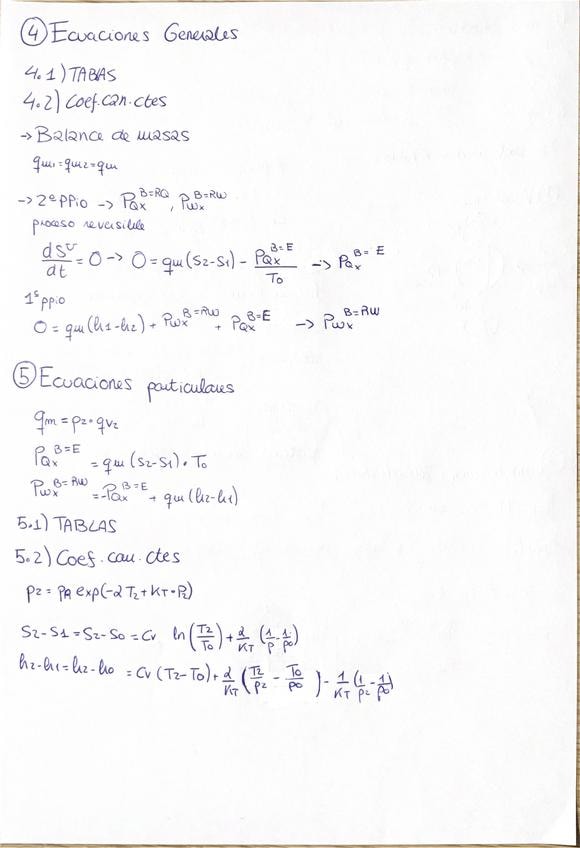 ④ Ecuaciones Generales
4.1) TABLAS
4.2) Coef. can. ctes
→ Balance de masas
qm1 = qm2 = qm
→ 2º ppio → PQx^B=RQ, PWx^B=RW
proceso reversible
dS^V/dt = 0 → 0 = qm(S2-S1) - PQx^B=E/T0 → PQx^B=E
1º ppio
0 = qm(h1-h2) + PWx^B=RW + PQx^B=E → PWx^B=RW
⑤ Ecuaciones particulares
qm = ρ2·qv2
PQx^B=E = qm (S2-S1)·T0
PWx^B=RW = -PQx^B=E + qm (h2-h1)
5.1) TABLAS
5.2) Coef. cau. ctes
ρ2 = ρR exp(-αT2+KT·P2)
S2-S1 = S2-S0 = Cv ln(T2/T0) + α/KT (1/ρ - 1/ρ0)
h2-h1 = h2-h0 = Cv (T2-T0) + α/KT (T2/ρ2 - T0/ρ0) - 1/KT (1/ρ2 - 1/ρ0)